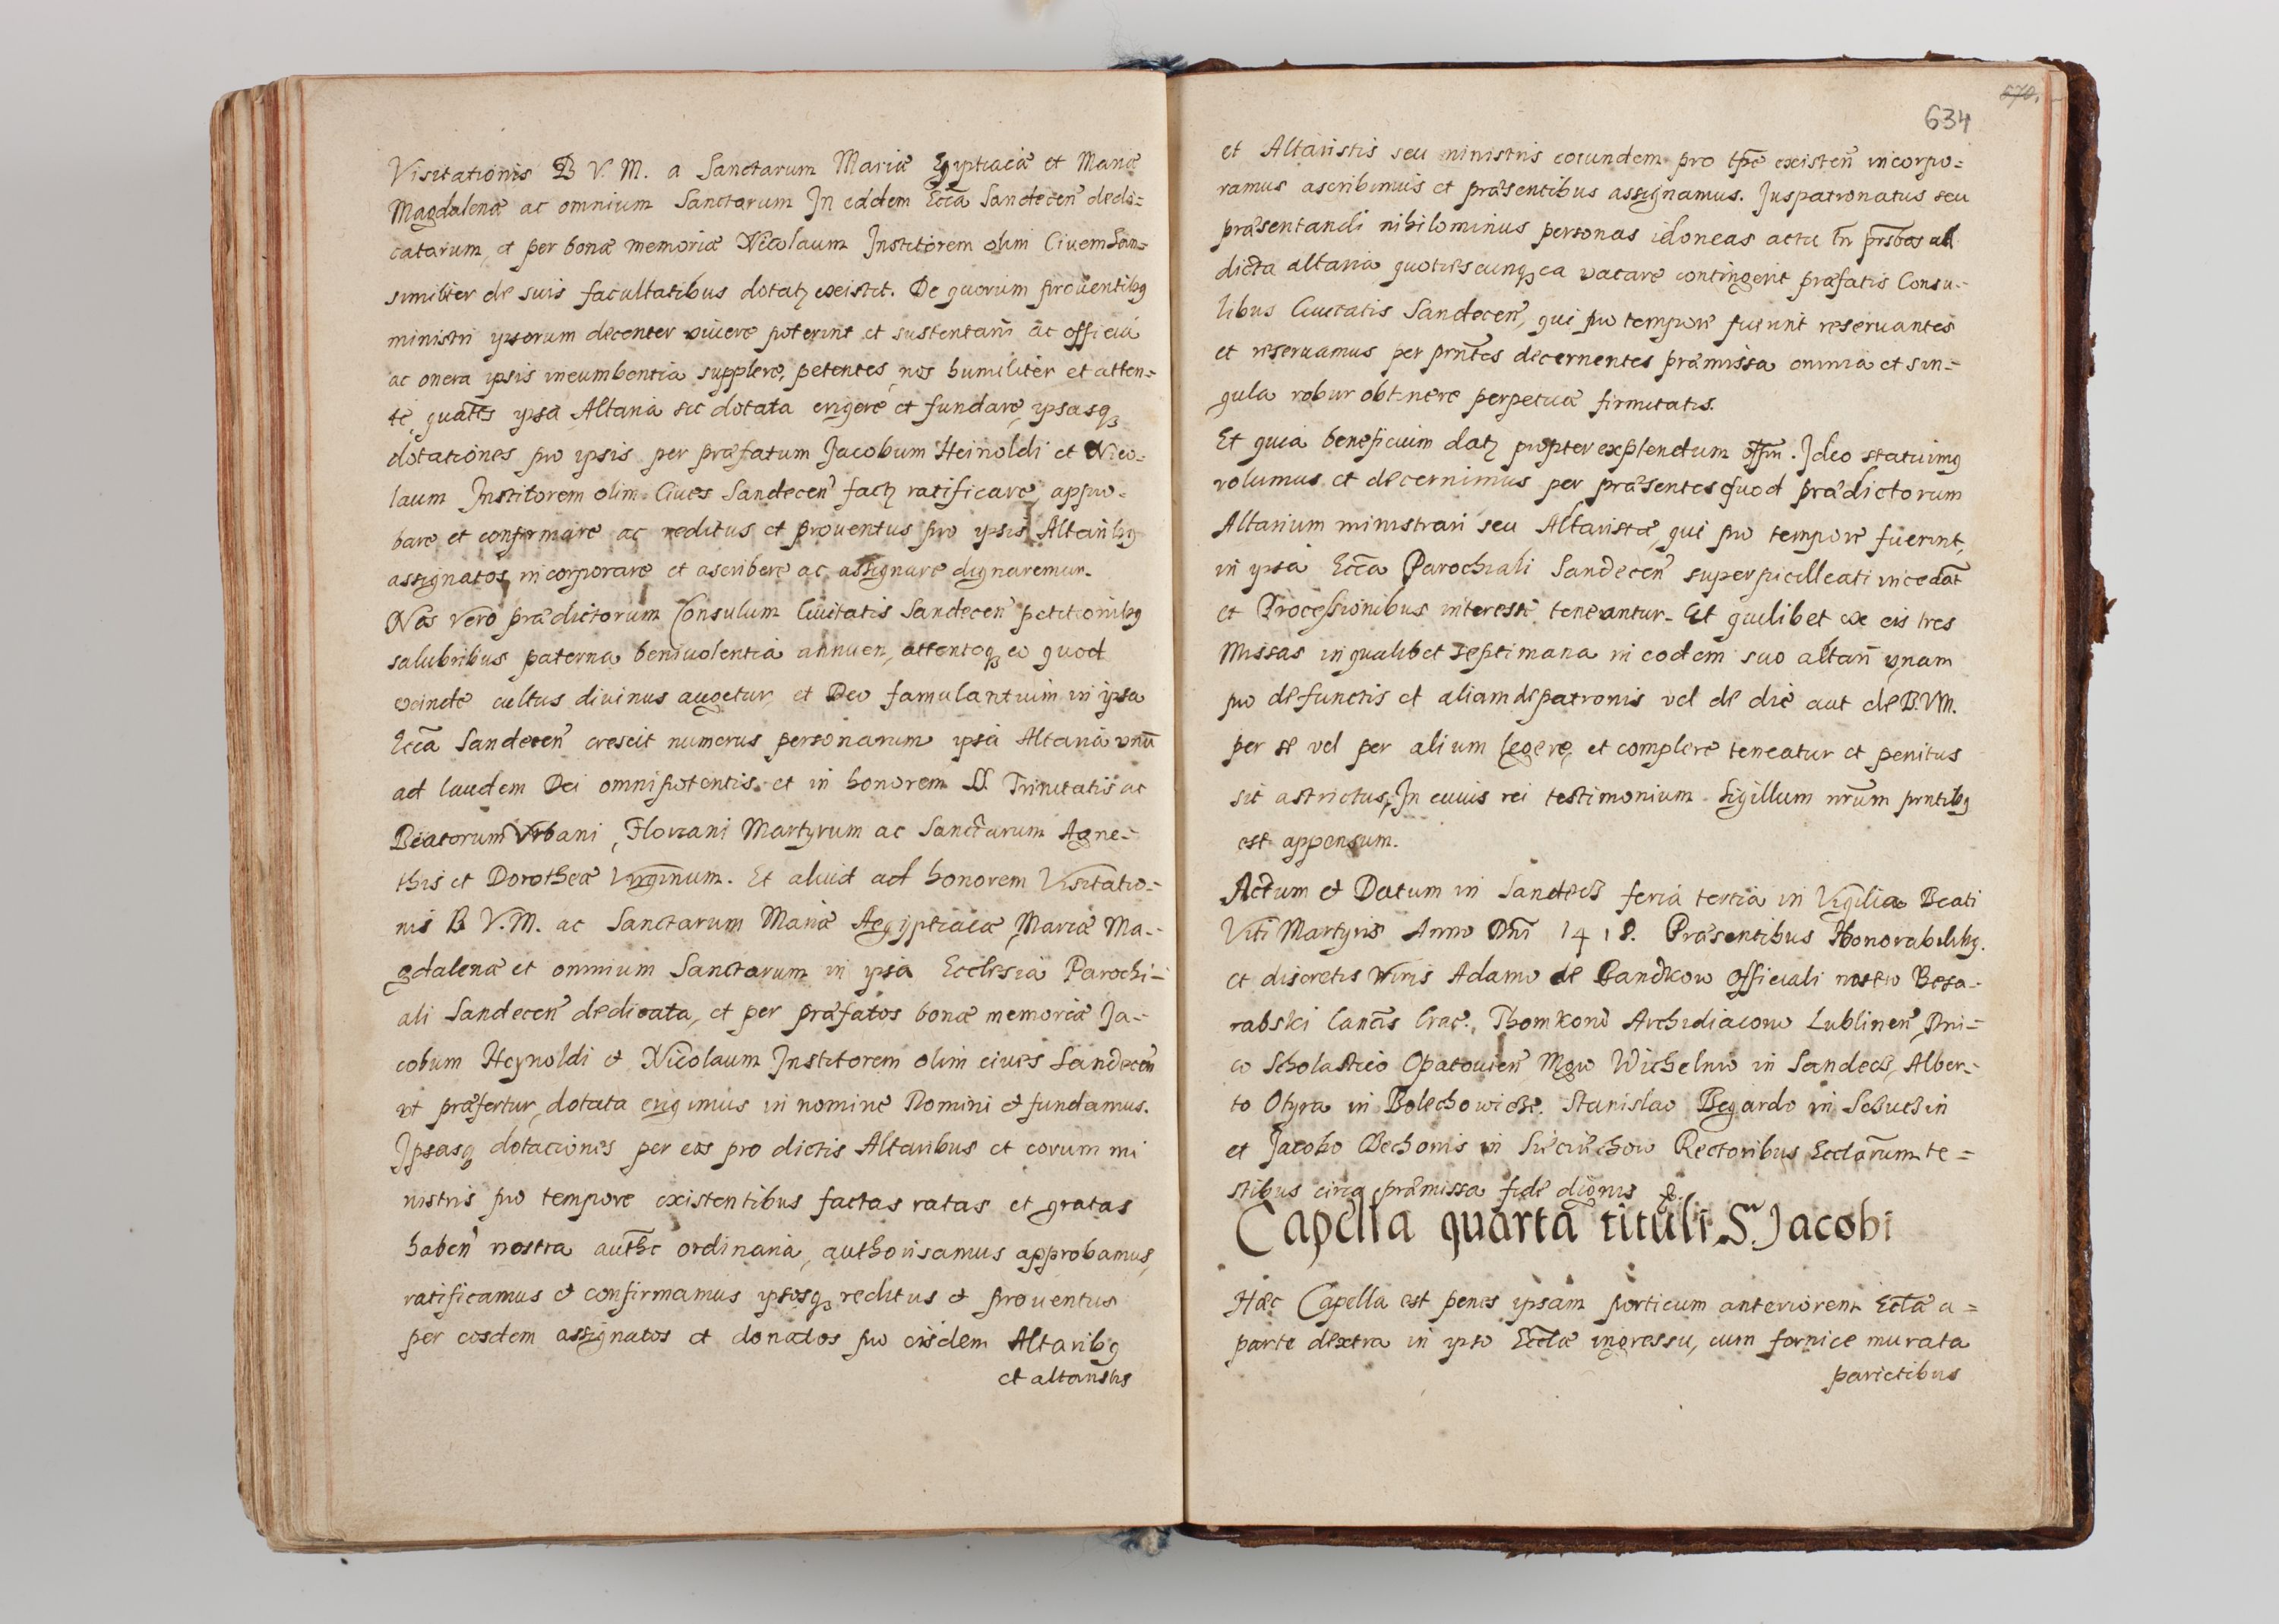 Visitationis B V. M. a Sanctarum Mariæ Egiptiacæ et Mariæ
Magdalenæ ac omnium Sanctorum In eadem Ecca Sandecen dedi=
catarum, et per bonæ memoriæ Nicolaum Institorem olim Civem San=
similiter de suis facultatibus dotatꝫ existit. De quorum proventibꝫ
ministri ipsorum decenter viuere poterint et sustentari ac officia
ac onera ipsis incumbentia supplere, petentes nos humiliter et atten=
te, quatts ipsa Altaria sic dotata erigere et fundare, ipsasqꝫ
dotationes pro ipsis per præfatum Jacobum Heinoldi et Nico=
laum Institorem olim Ciues Sandecen factꝫ ratificare, appro=
bare et confirmare ac reditus et prouentus pro ipsis Altaribꝫ
assignatos incorporare et ascribere ac assignare dignaremur.
Nos vero prædictorum Consulum Ciuitatis Sandecen petitionibꝫ
salubribus paterna beniuolentia annuen, attentoqꝫ eo quod
exinde cultus diuinus augetur, et Deo famulantium in ipsa
Ecca Sandecen crescit numerus personarum ipsa Altaria vnū
ad laudem Dei omnipotentis et in honorem SS. Trinitatis ac
Beatorum Vrbani, Floriani Martyrum ac Sanctarum Agne=
this et Dorotheæ Virginum. Et aliud ad honorem Visitatio=
nis B V. M. ac Sanctarum Mariæ Aegyptiacæ, Mariæ Ma=
gdalenæ et omnium Sanctorum in ipsa Ecclesia Parochi=
ali Sandecen dedicata, et per præfatos bonæ memoriæ Ja=
cobum Heynoldi et Nicolaum Institorem olim ciues Sandecen
vt præfertur, dotata erigimus in nomine Domini et fundamus.
Ipsasqꝫ dotationes per eos pro dictis Altaribus et eorum mi
nistris pro tempore existentibus factas ratas et gratas
haben nostra authe ordinaria, authorisamus approbamus,
ratificamus et confirmamus ipsosqꝫ reditus et prouentus
per eosdem assignatos et donatos pro eisdem Altaribꝫ
et altaristis
670.
634
et Altaristis seu ministris eorundem pro tpe existen incorpo=
ramus ascribimus et præsentibus assignamus. Juspatronatus seu
præsentandi nihilominus personas idoneas actu tn prsbos ad
dicta altaria quotiescunqꝫ ea vacare contingerit præfatis Consu=
libus Ciuitatis Sandecen, qui pro tempore fuerint reseruantes
et reseruamus per prntes decernentes præmissa omnia et sin=
gula robur obtinere perpetuæ firmitatis.
Et quia beneficium datꝫ propter explendum offm. Ideo statuimꝫ
volumus et decernimus per præsentes quod prædictorum
Altarium ministrari seu Altaristæ, qui pro tempore fuerint,
in ipsa Ecca Parochiali Sandecen superpicelleati incedāt
et Processionibus interesse teneantur. Et quilibet ex eis tres
Missas in qualibet septimana in eodem suo altari vnam
pro defunctis et aliam de patronis vel de die aut de B.V.M.
per se vel per alium legere, et complere teneatur et penitus
sit astrictus, In cuius rei testimonium Sigillum nrum prntibꝫ
est appensum.
Actum et Datum in Sandecz feria tertia in Vigilia Beati
Viti Martyris Anno Dni 1418. Præsentibus Honorabilibꝫ.
et discretis viris Adamo de Bandkow officiali nostro Besa=
rabski Cancs Crac., Thomkone Archidiacono Lublinen,
co Scholastico Opatouien Mgro Wichelmo in Sandecz, Alber=
to Otyra in Bolechowicze. Stanislao Begardo in
et Jacobo Bechonis in Rectoribus Ecclarum te=
stibus circa præmissa fide dignis &.
Capella quarta tituli Sti Jacobi
Hæc Capella est penes ipsam porticum anteriorem Ecclæ a=
parte dextra in ipso Ecclæ ingressu, cum fornice murata
parietibus